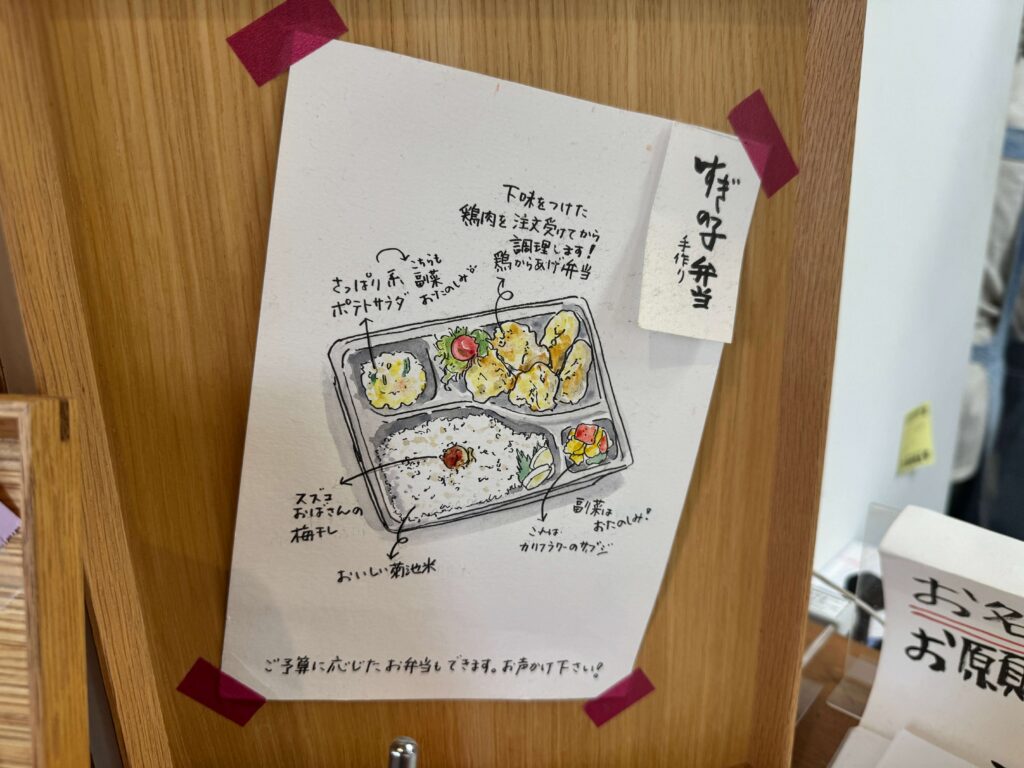 すぎの子弁当
手作り
下味をつけた
鶏肉を注文受けてから
調理します!
鶏からあげ弁当
こちらも
副菜
おたのしみ
さっぱり系
ポテトサラダ
スズコ
おばさんの
梅干し
おいしい菊池米
副菜は
おたのしみ!
カリフラワーの
ご予算に応じたお弁当もできます。お声かけ下さい!
お名
お願